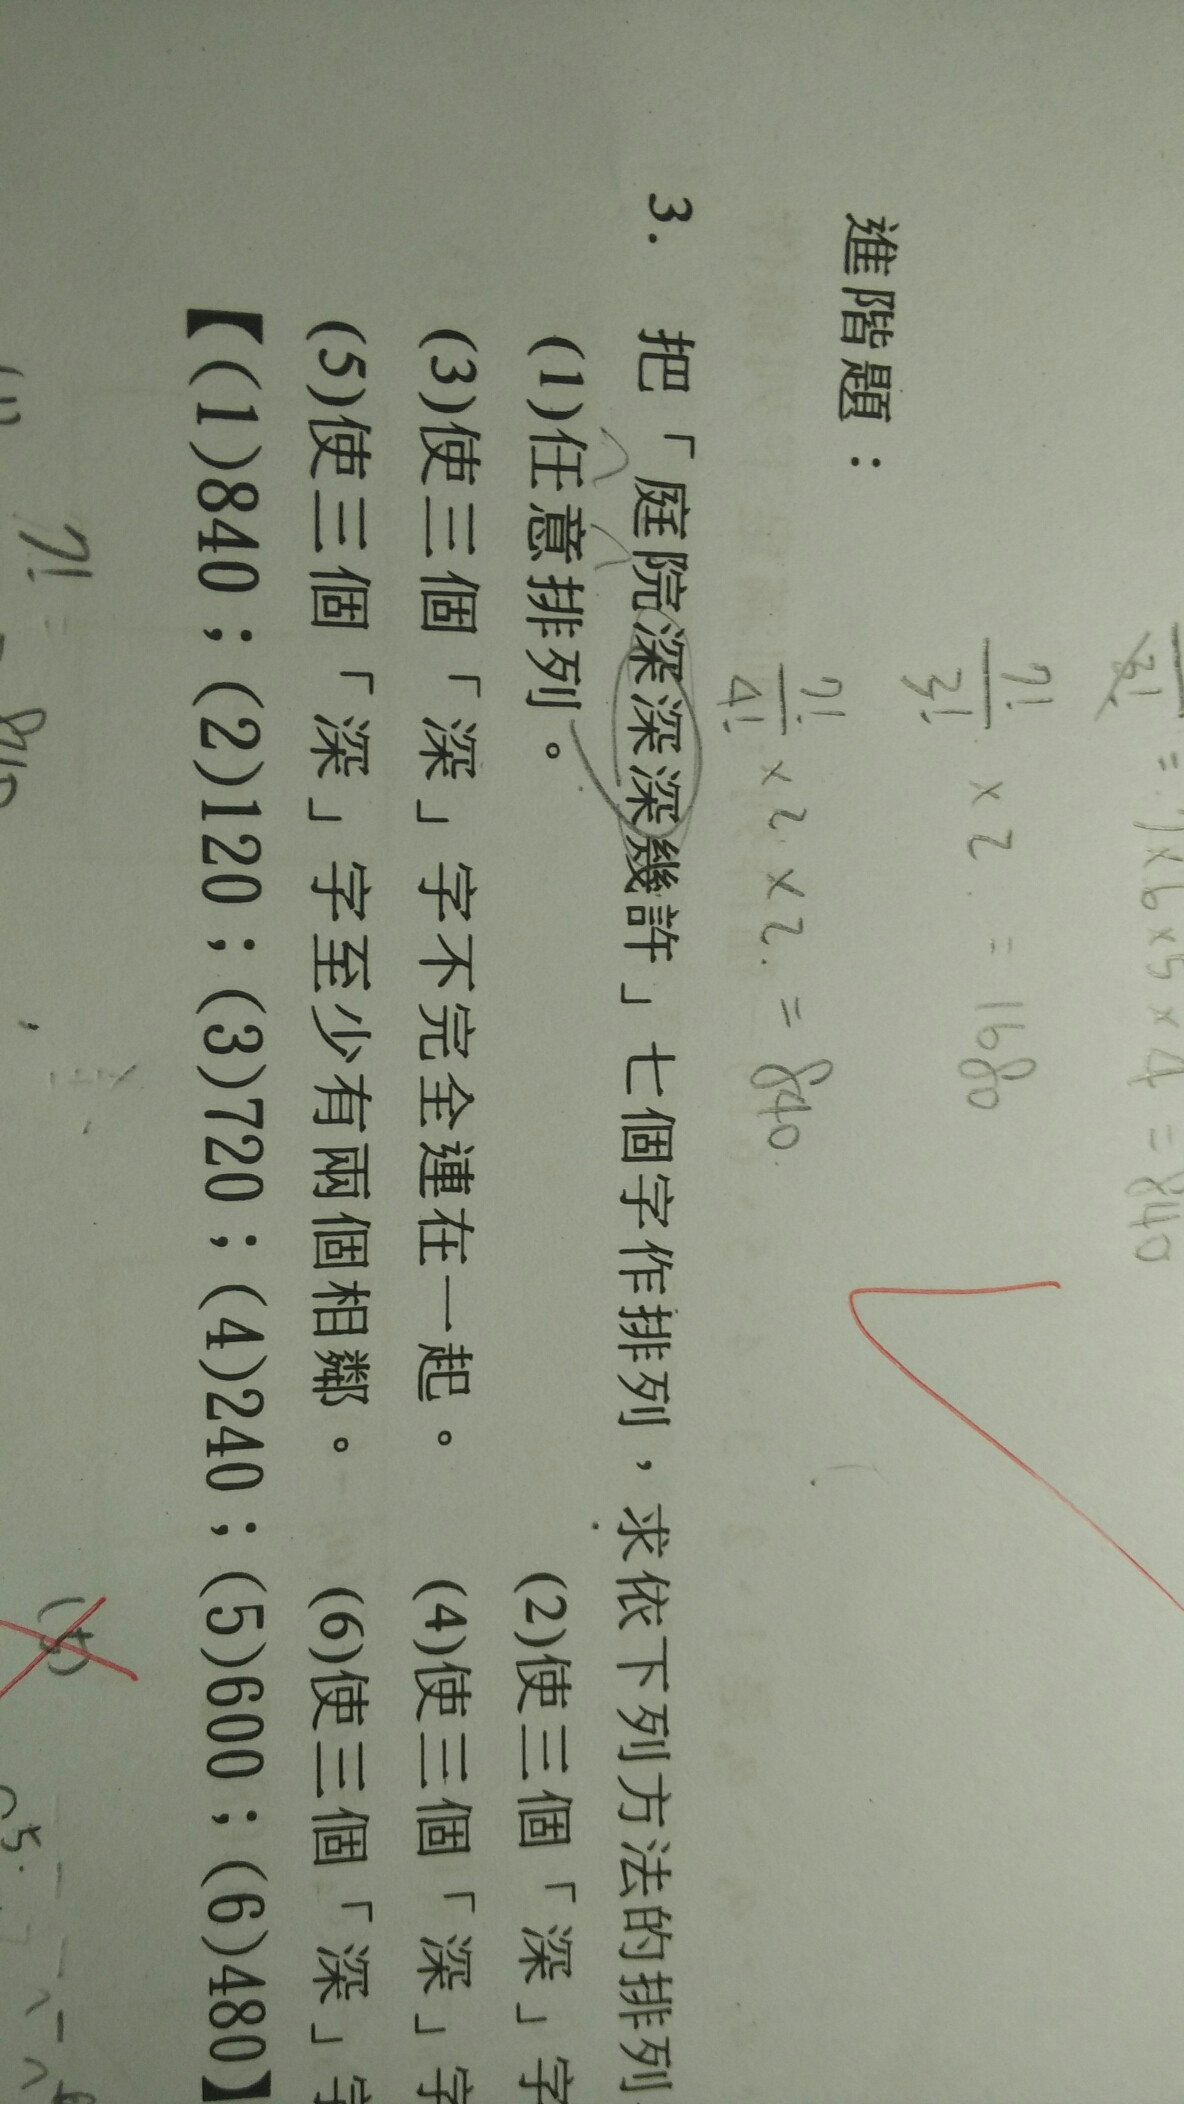 3! = 7×6×5×4 = 840
7!/3! × 2 = 1680
7!/4! × 2 × 2. = 840.
進階題：
3. 把「庭院深深深幾許」七個字作排列，求依下列方法的排列
(1)任意排列。 (2)使三個「深」字
(3)使三個「深」字不完全連在一起。 (4)使三個「深」字
(5)使三個「深」字至少有兩個相鄰。 (6)使三個「深」字
【(1)840；(2)120；(3)720；(4)240；(5)600；(6)480】
(1) 7! = 840